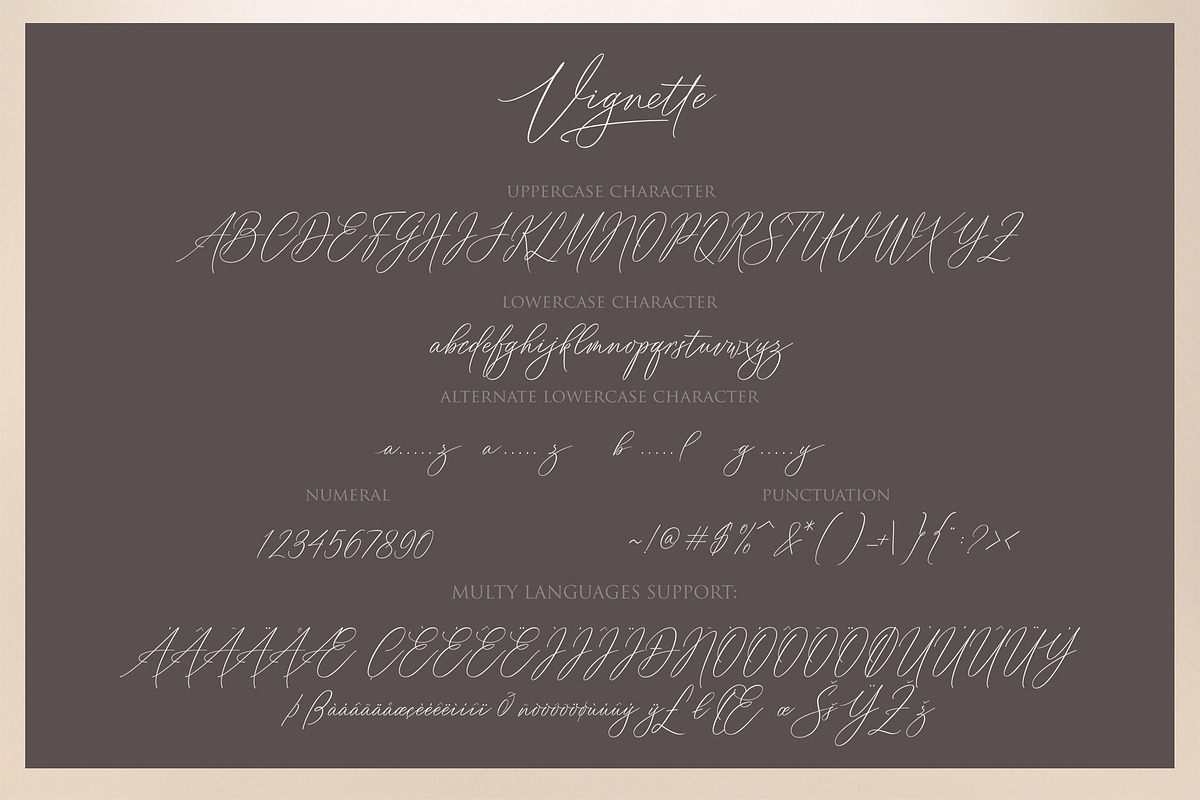 Vignette
UPPERCASE CHARACTER
ABCDEFGHIJKLMNOPQRSTUVWXYZ
LOWERCASE CHARACTER
abcdefghijklmnopqrstuvwxyz
ALTERNATE LOWERCASE CHARACTER
a.....z a.....z b.....l g.....y
NUMERAL PUNCTUATION
1234567890 ~!@#$%^&*()_+|}{":?><
MULTY LANGUAGES SUPPORT: